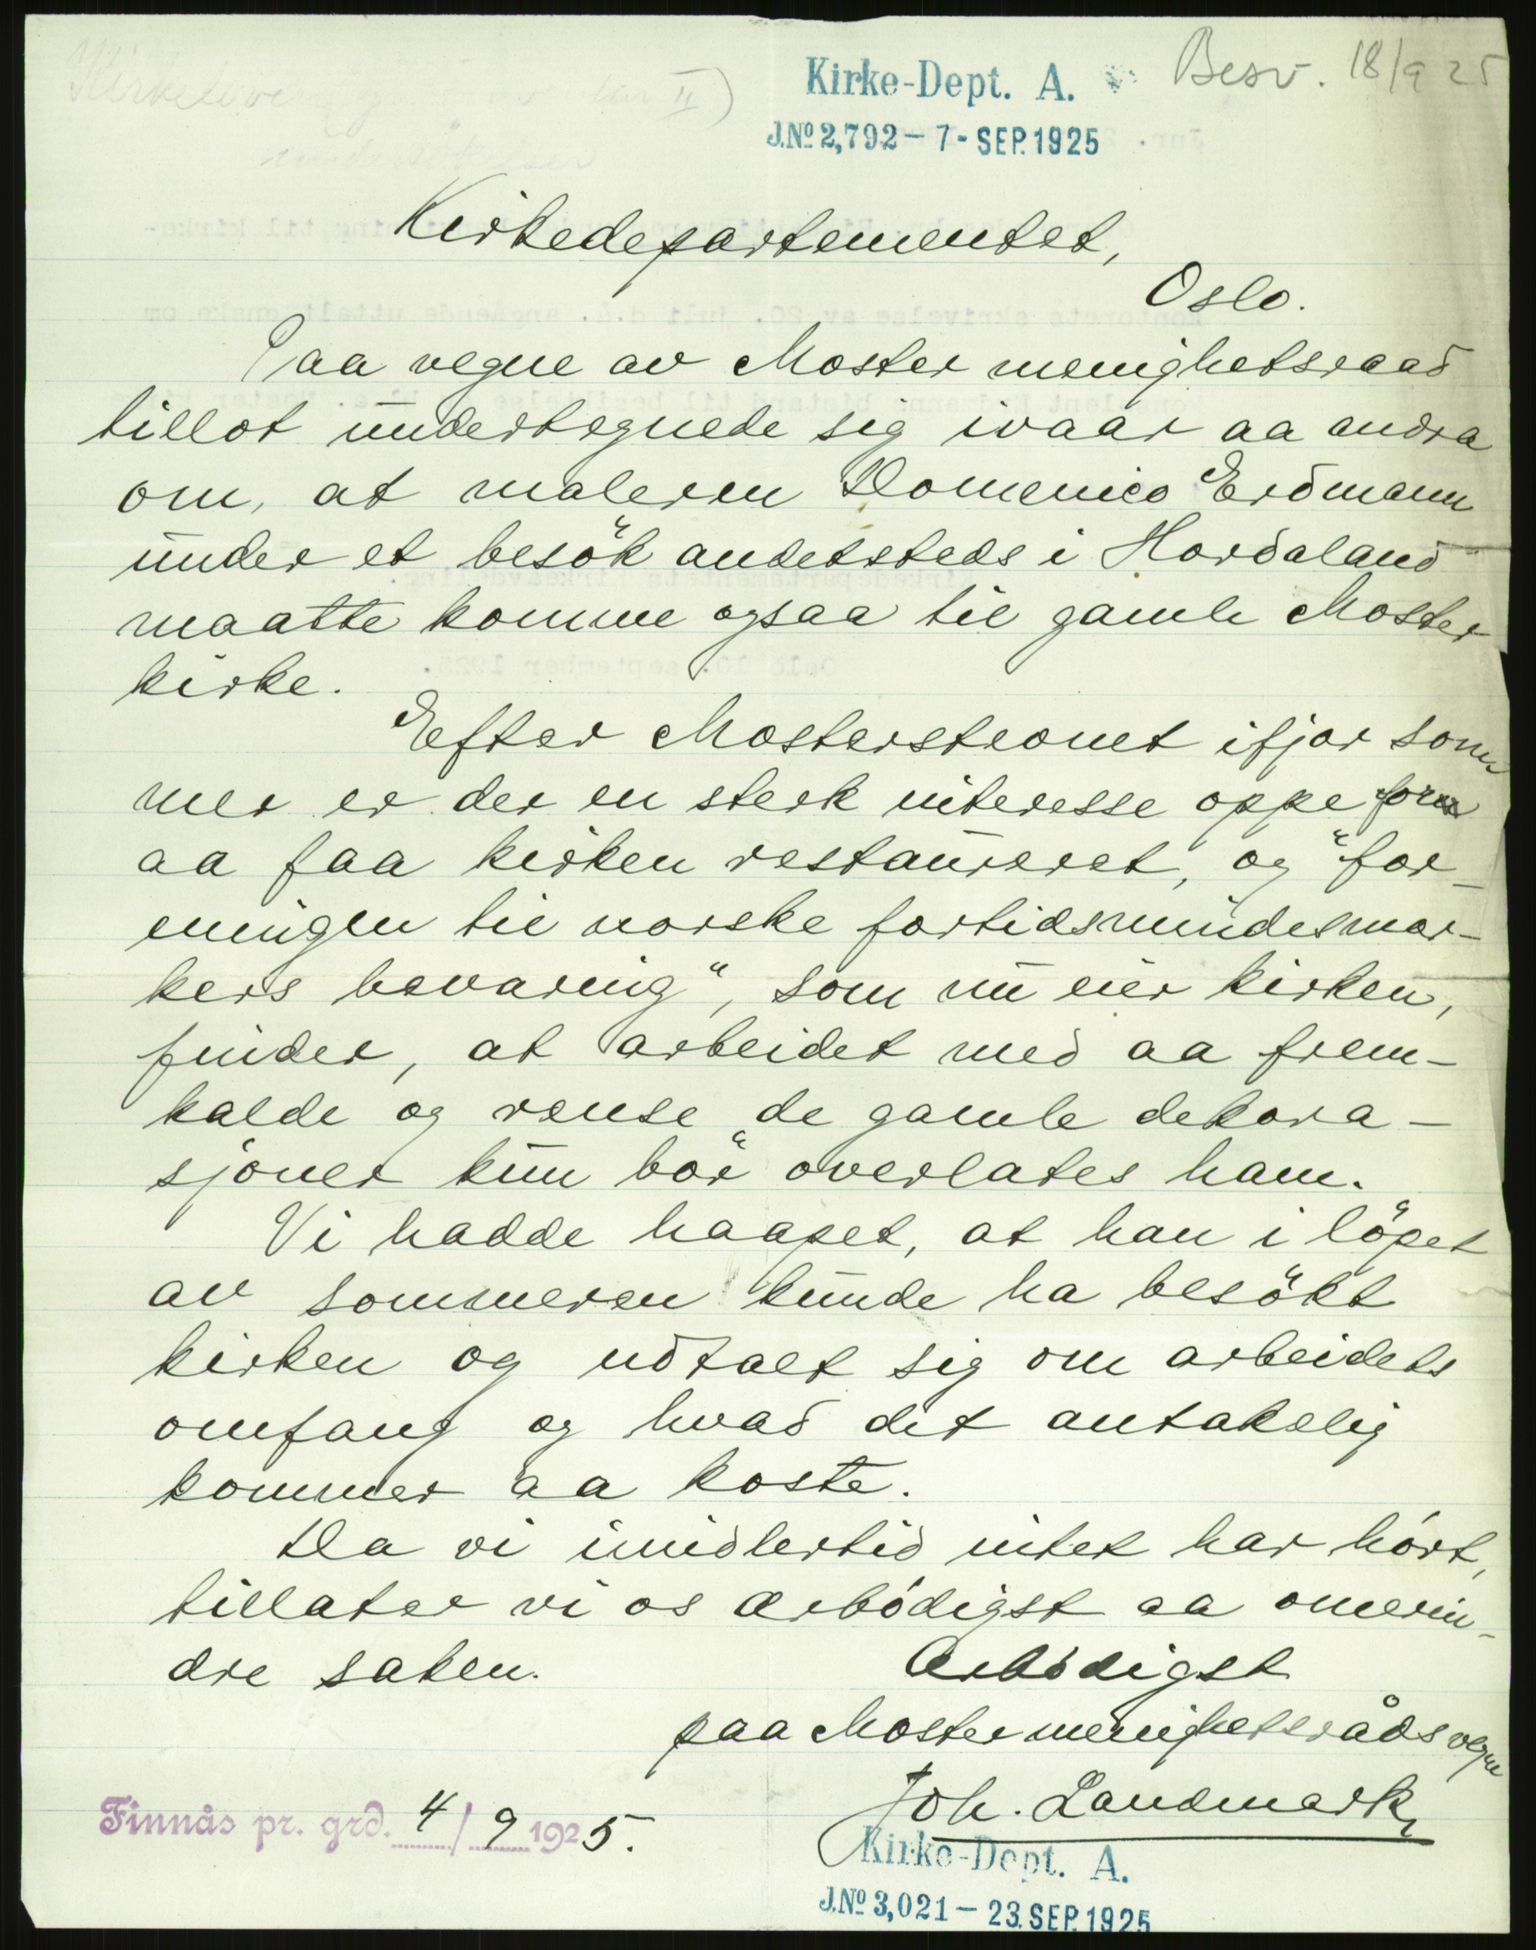 Kirke-Dept. A.
Besv. 18/9 25
J.Nº 2,792 - 7 - SEP. 1925
Kirkedepartementet,
Oslo.
Paa vegne av Moster menighetsraad
tillot undertegnede sig ivaar aa andra
om, at maleren Domenico Erdmann
under et besök andetsteds i Hordaland
maatte komme ogsaa til gamle Moster
kirke.
Efter Mosterstevnet ifjor som
mer er der en sterk interesse oppe for
aa faa kirken restaureret, og "for-
eningen til norske fortidsmindesmær-
kers bevaring", som nu eier kirken,
finder, at arbeidet med aa frem-
kalde og rense de gamle dekora-
sjoner kun bör overlates ham.
Vi hadde haapet, at han i löpet
av sommeren kunde ha besökt
kirken og udtalt sig om arbeidets
omfang og hvad det antakelig
kommer aa koste.
Da vi imidlertid intet har hört,
tillater vi os ærbödigst aa omerin-
dre saken.
Ærbödigst
paa Moster menighetsråds vegne
Joh. Landmark
Finnås pr. grd. 4/9 1925.
Kirke-Dept. A.
J.Nº 3,021 - 23. SEP. 1925